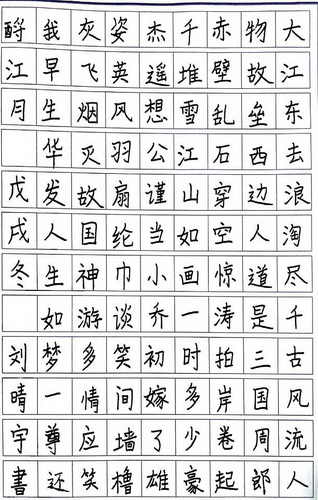 大江东去浪淘尽千古风流人
物故垒西边人道是三国周郎
赤壁乱石穿空惊涛拍岸卷起
千堆雪江山如画一时多少豪
杰遥想公谨当小乔初嫁了雄
姿英风羽扇纶巾谈笑间墙橹
灰飞烟灭故国神游多情应笑
我早生华发人生如梦一尊还
酹江月 戊戌冬 刘晴宇書